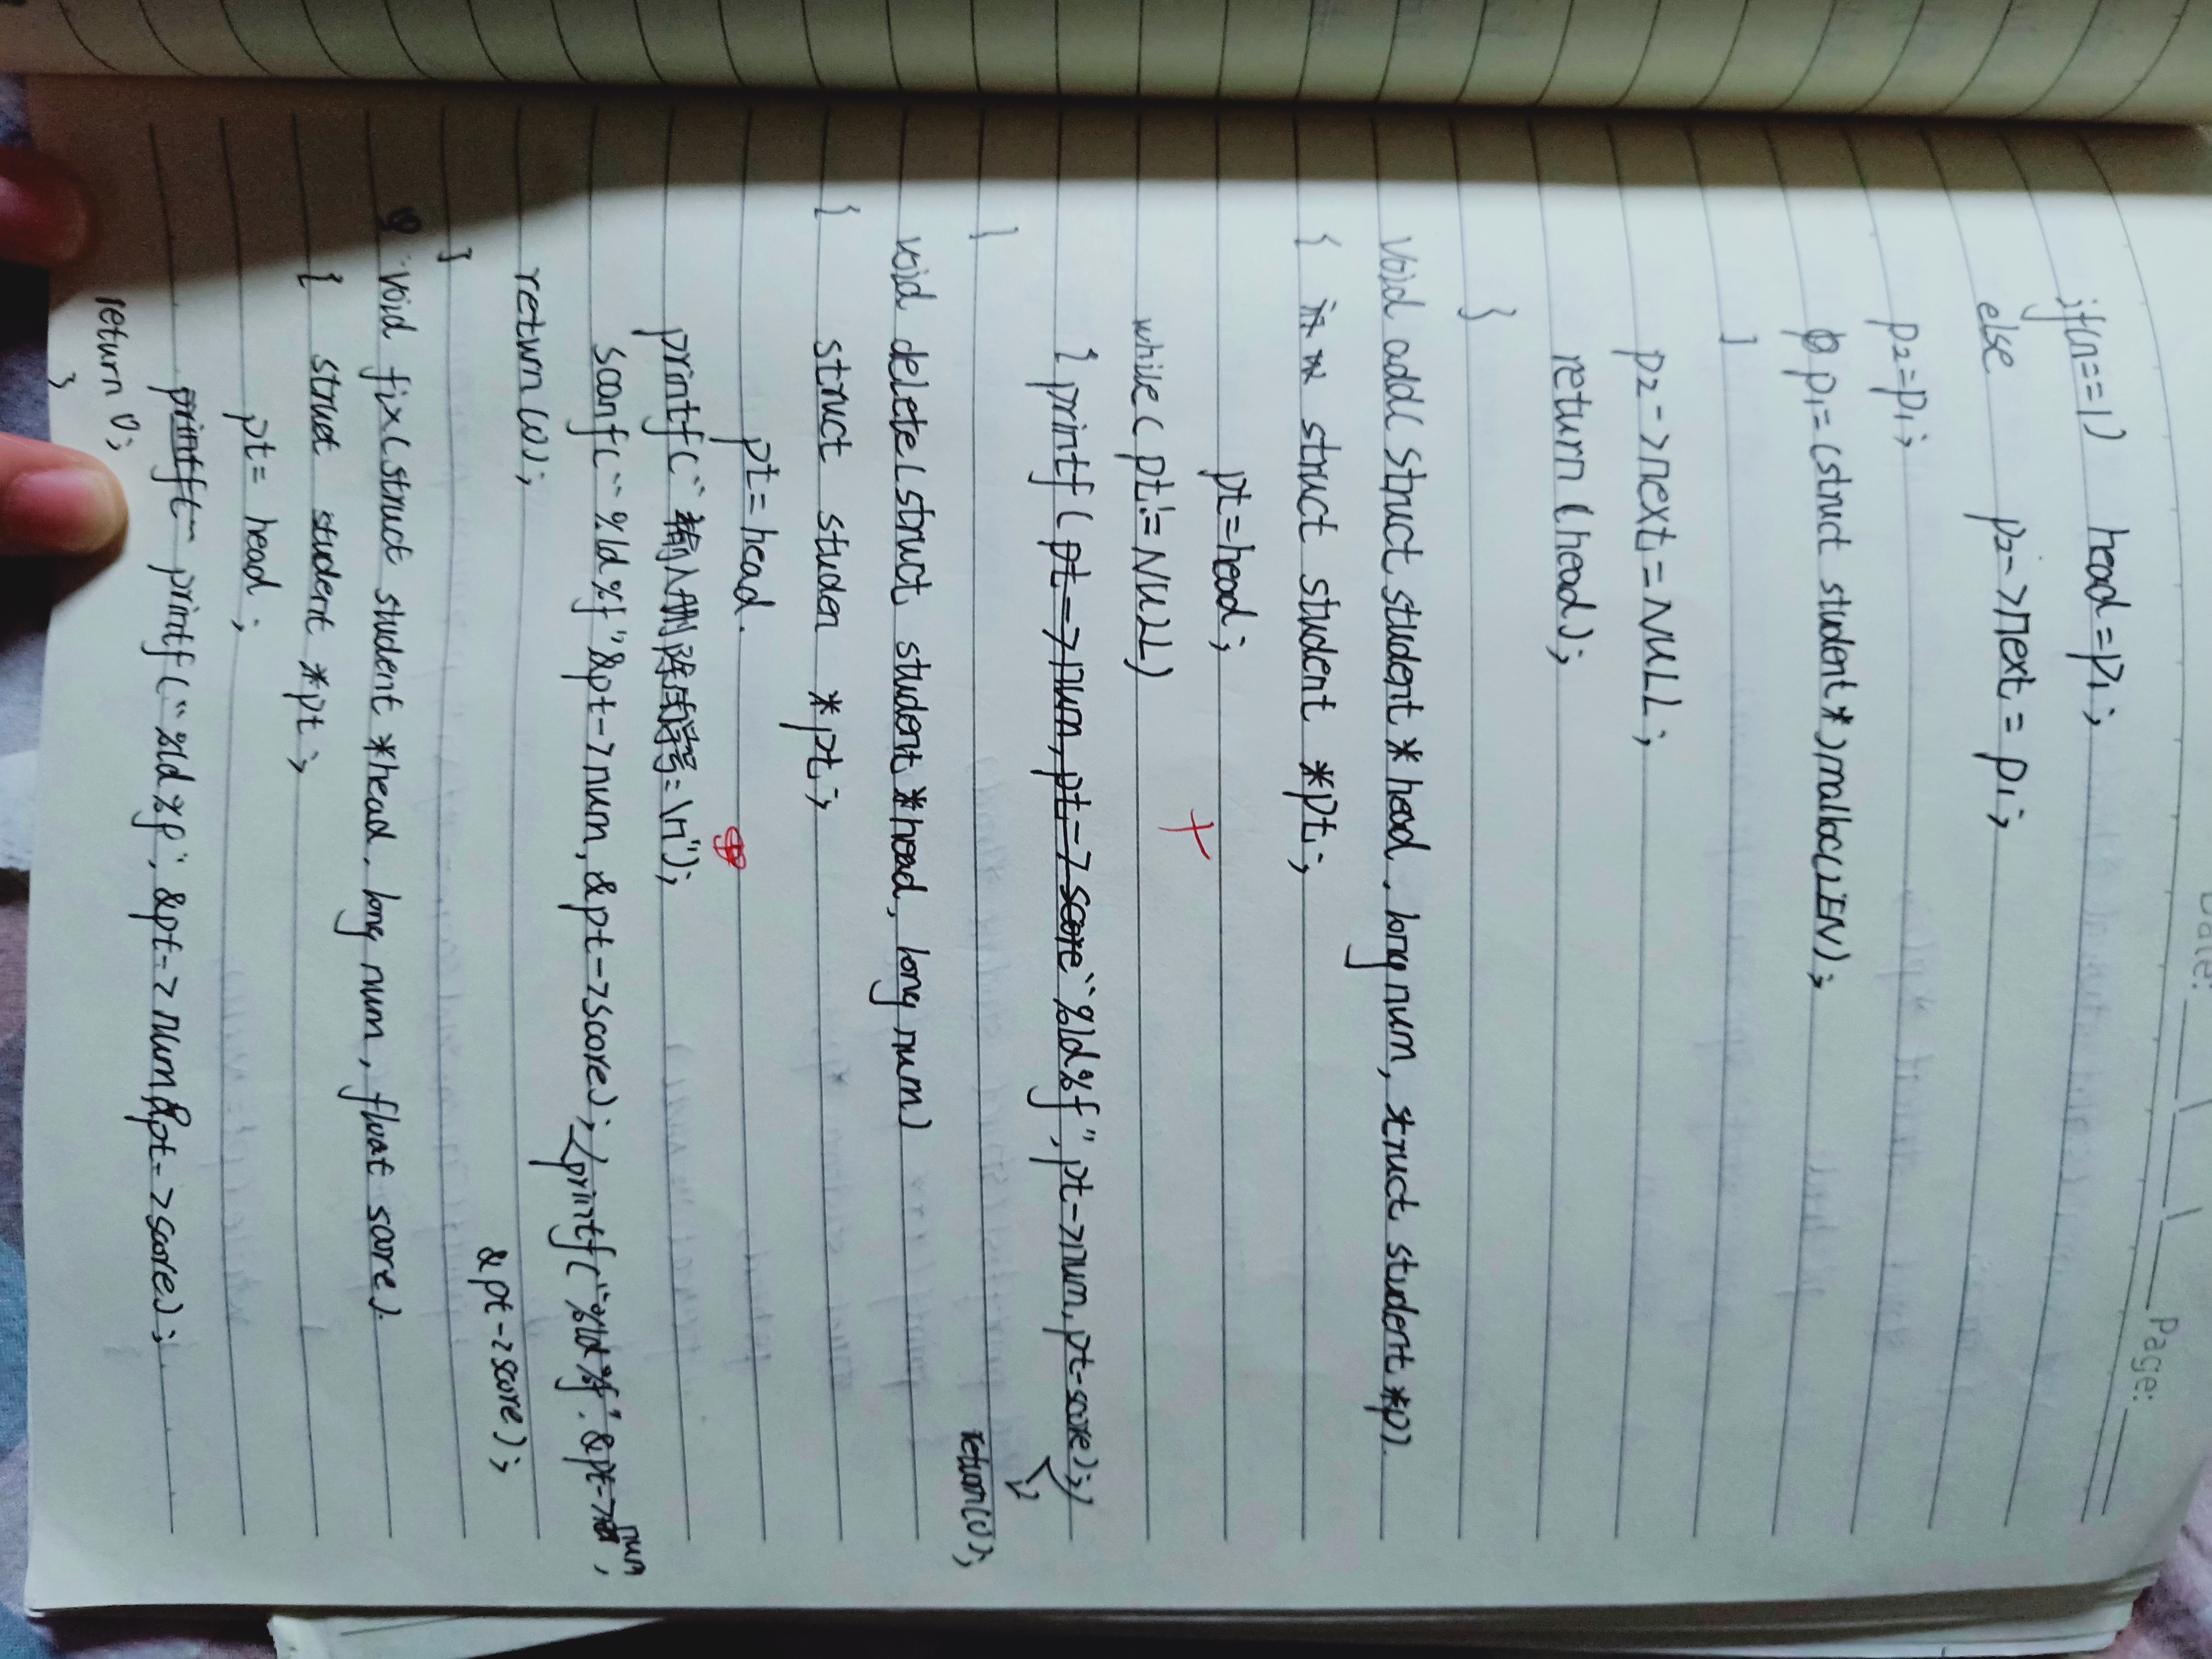 Date: Page:
if(n==1) head=p1;
else p2->next=p1;
p2=p1;
p1=(struct student*)malloc(LEN);
}
p2->next=NULL;
return(head);
}
void add(struct student *head, long num, struct student *p)
{ struct student *pt;
pt=head;
while(pt!=NULL)
{ printf(pt->num,pt->score "%ld%f", pt->num, pt-score);
} return(0);
void delete(struct student *head, long num)
{ struct studen *pt;
pt=head.
printf("输入删除学号=\n");
scanf("%ld%f"&pt->num,&pt->score); printf("%ld%f".&pt->num,
&pt->score);
return(0);
}
void fix(struct student *head, long num, float score)
{ struct student *pt;
pt=head;
printf printf("%ld%f", &pt->num,&pt->score);
return 0;
}